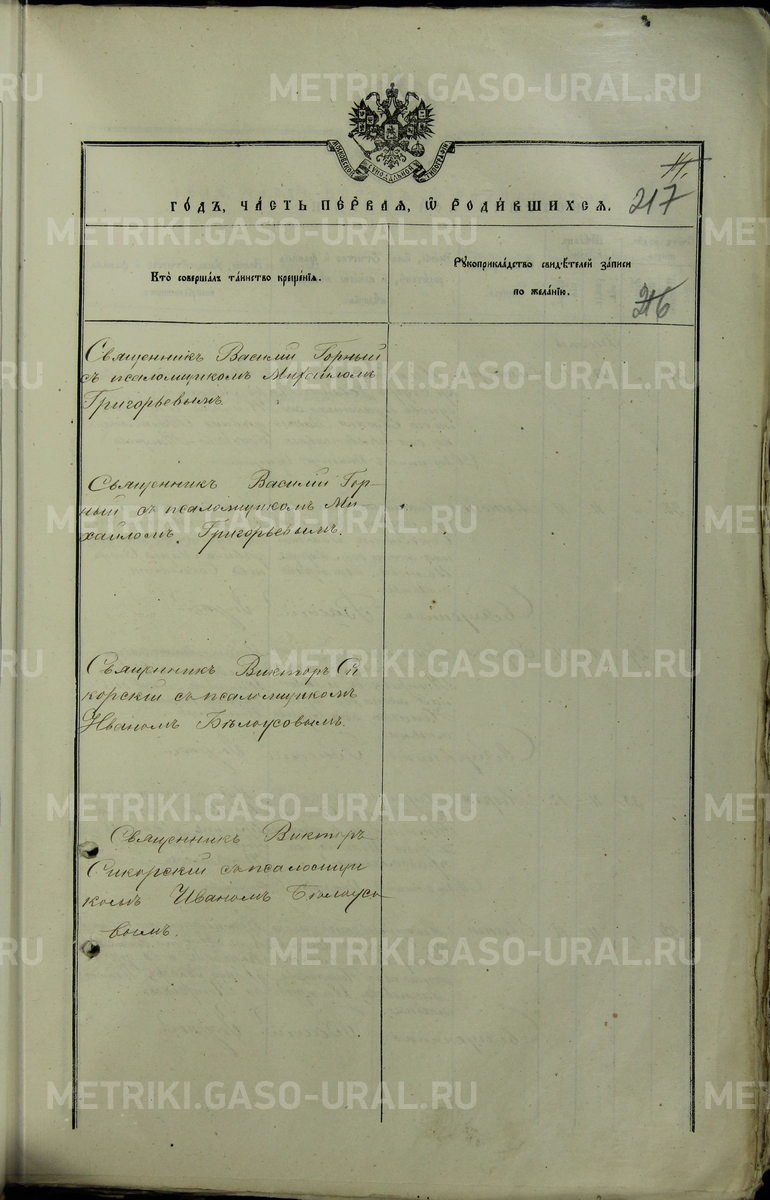 METRIKI.GASO-URAL.RU
11
годъ, часть первая, ѡ родившихся. 217
Кто совершалъ таинство крещенія.
Рукоприкладство свидѣтелей записи
по желанію.
216
Священникъ Василій Горный
съ псаломщикомъ Михаиломъ
Григорьевымъ.
Священникъ Василій Гор-
ный съ псаломщикомъ Ми-
хаиломъ Григорьевымъ.
Священникъ Викторъ Си
корскій съ псаломщикомъ
Иваномъ Бѣлоусовымъ.
Священникъ Викторъ
Сикорскій съ псаломщи
комъ Иваномъ Бѣлоусо
вымъ.
METRIKI.GASO-URAL.RU